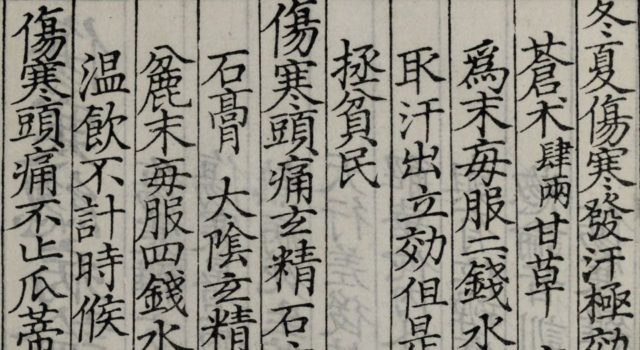 冬夏傷寒發汗極効
蒼术肆兩甘草
爲末每服二錢水
取汗出立効但是
拯貧民
傷寒頭痛玄精石
石膏 太陰玄精
麄末每服四錢水
温飲不計時候
傷寒頭痛不止瓜蒂